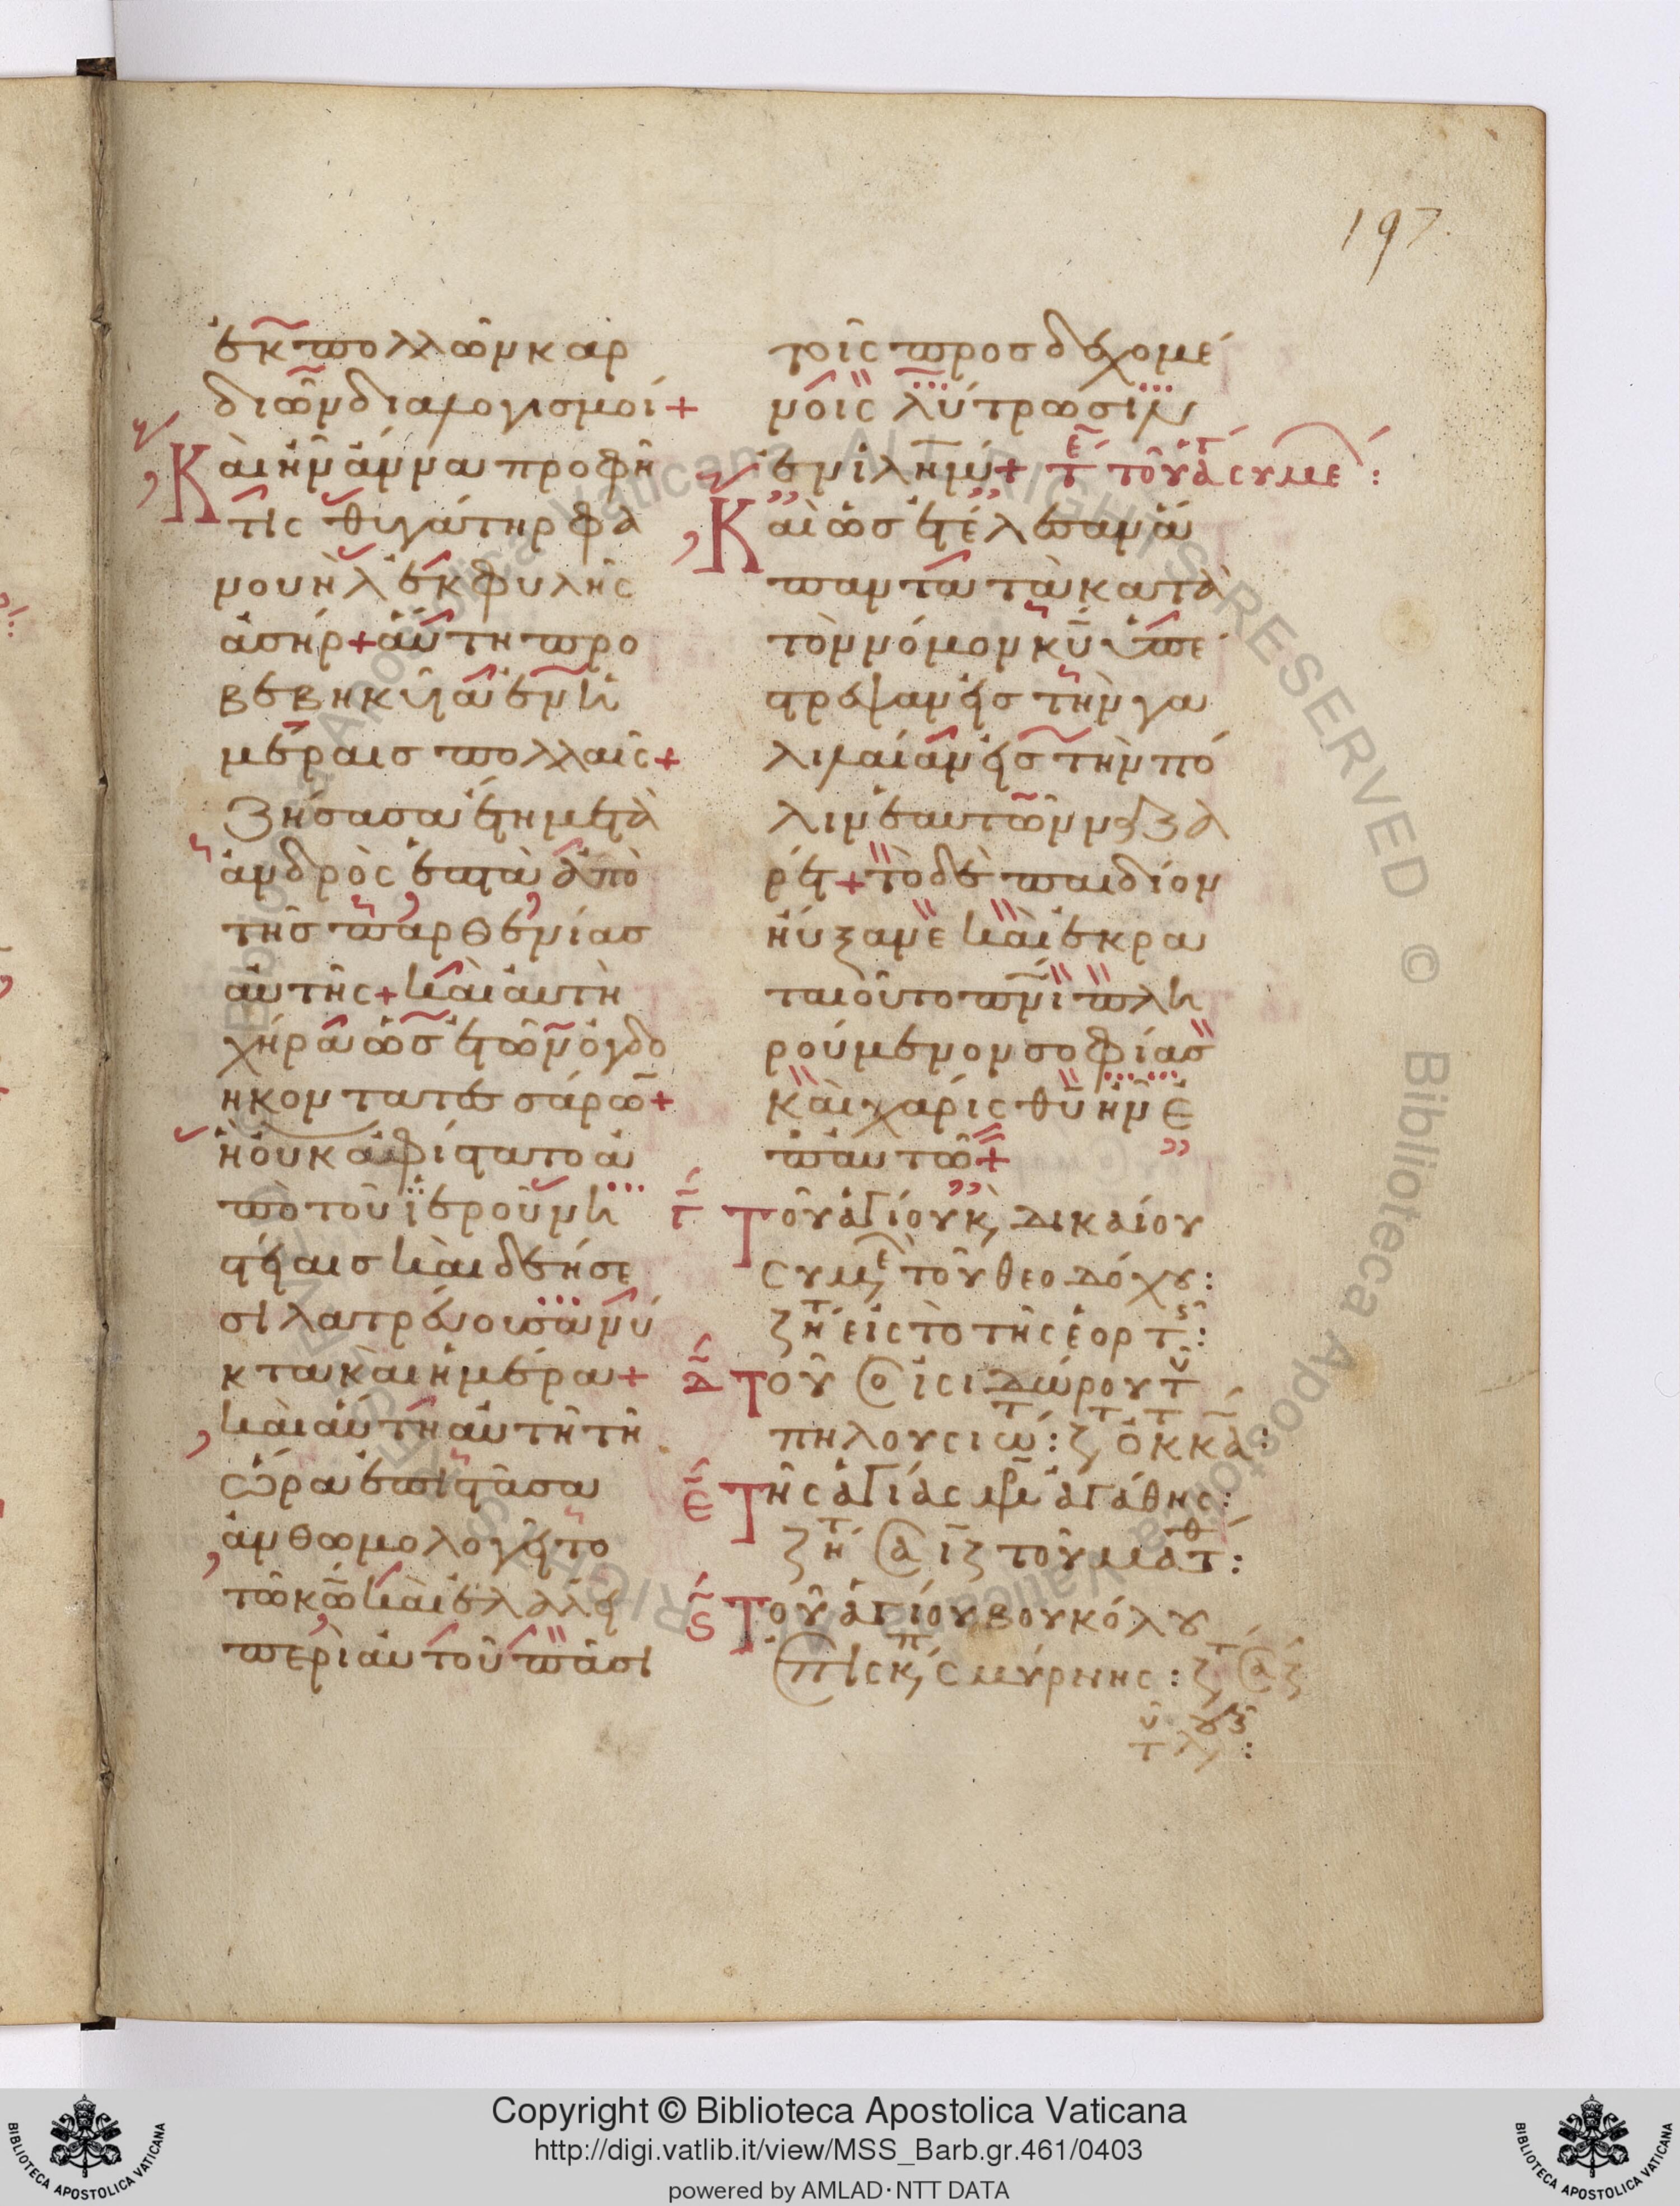 197
ἐκ πολλῶν καρ
διῶν διαλογισμοί +
Καὶ ἦν ἄννα προφῆ
τις θυγάτηρ φα
νουὴλ ἐκ φυλῆς
ἀσήρ + αὕτη προ
βεβηκυῖα ἐν ἡ
μέραις πολλαῖς +
ζήσασα ἔτη μετὰ
ἀνδρὸς ἑπτὰ ἀπὸ
τῆς παρθενίας
αὐτῆς + καὶ αὐτὴ
χήρα ὡς ἐτῶν ὀγδο
ηκοντατεσσάρω̅ +
ἣ οὐκ ἀφίστατο ἀ
πὸ τοῦ ἱεροῦ νη
στείαις καὶ δεήσε
σι λατρεύουσα νύ
κτα καὶ ἡμέρα +
καὶ αὐτὴ αὐτῇ τῇ
ὥρα ἐπιστᾶσα
ἀνθωμολογεῖτο
τῶ κ̅ω̅ καὶ ἐλάλει
περὶ αὐτοῦ πᾶσι
τοῖς προσδεχομέ
νοις λύτρωσιν
ἐν ἰλημ + τ τοῦ ἁγ συμε :
Καὶ ὡς ἐτέλεσαν ἅ
παντα τὰ κατὰ
τὸν νόμον κ̅υ̅ ὑπέ
στρεψαν εἰς τὴν γα
λιλαίαν εἰς τὴν πό
λιν ἑαυτῶν ναζα
ρέτ + τὸ δὲ παιδίον
ηὔξανε καὶ ἐκρα
ταιοῦτο π̅ν̅ι̅ πλη
ρούμενον σοφίας
καὶ χάρις θ̅υ̅ ἦν ἐ
π αὐτῶ +
γ Τοῦ ἁγίου κ, δικαίου
συμε τοῦ θεοδόχου :
ζητ εἰς τὸ τῆς ἑορτ :
δ Τοῦ ὁ ἰσιδώρου τ
πηλουσιώτ : ζτ ὀκτ κα :
ε Τῆς ἁγίας μρ ἀγάθης :
ζητ α ιζ τοῦ ματθ :
ς Τοῦ ἁγίου βουκόλου
ἐπισκπ σμύρνης : ζτ
Copyright © Biblioteca Apostolica Vaticana
http://digi.vatlib.it/view/MSS_Barb.gr.461/0403
powered by AMLAD·NTT DATA
BIBLIOTECA APOSTOLICA VATICANA
BIBLIOTECA APOSTOLICA VATICANA